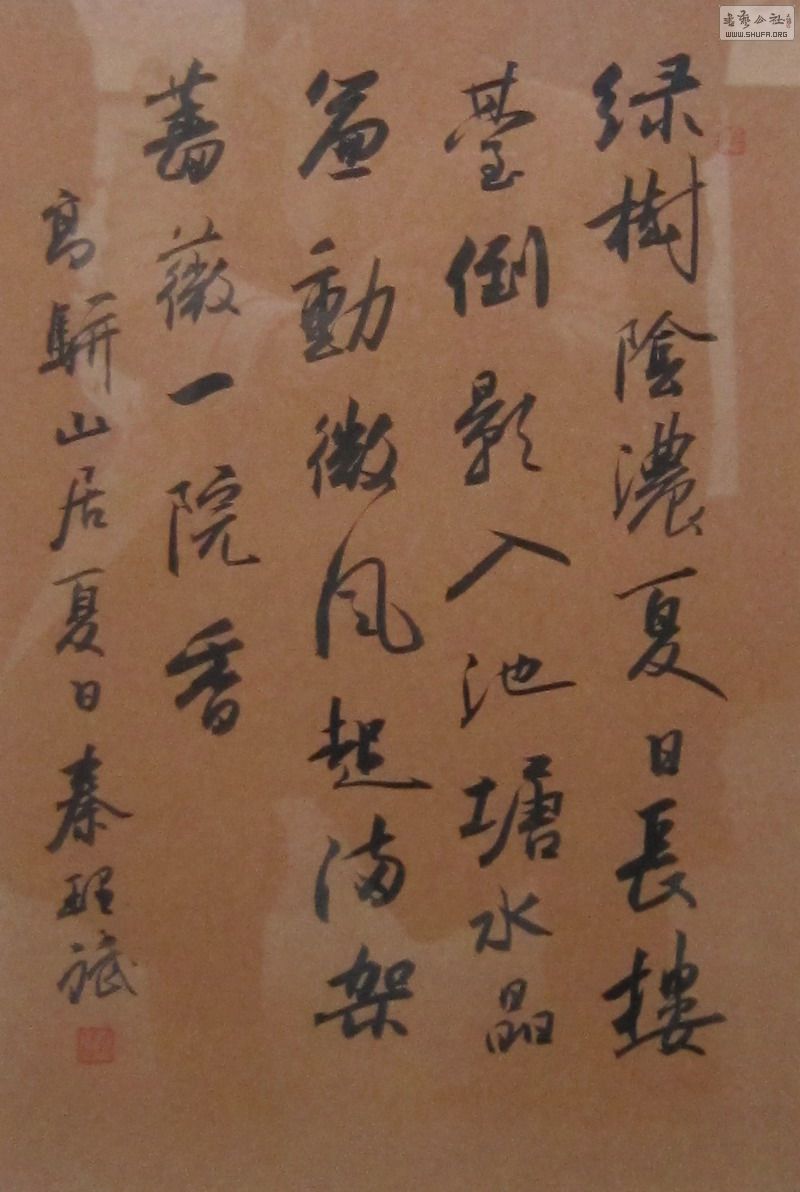 绿樹陰濃夏日長樓
臺倒影入池塘水晶
簾動微風起满架
薔薇一院香
高駢山居夏日秦
書藝公社
WWW.SHUFA.ORG